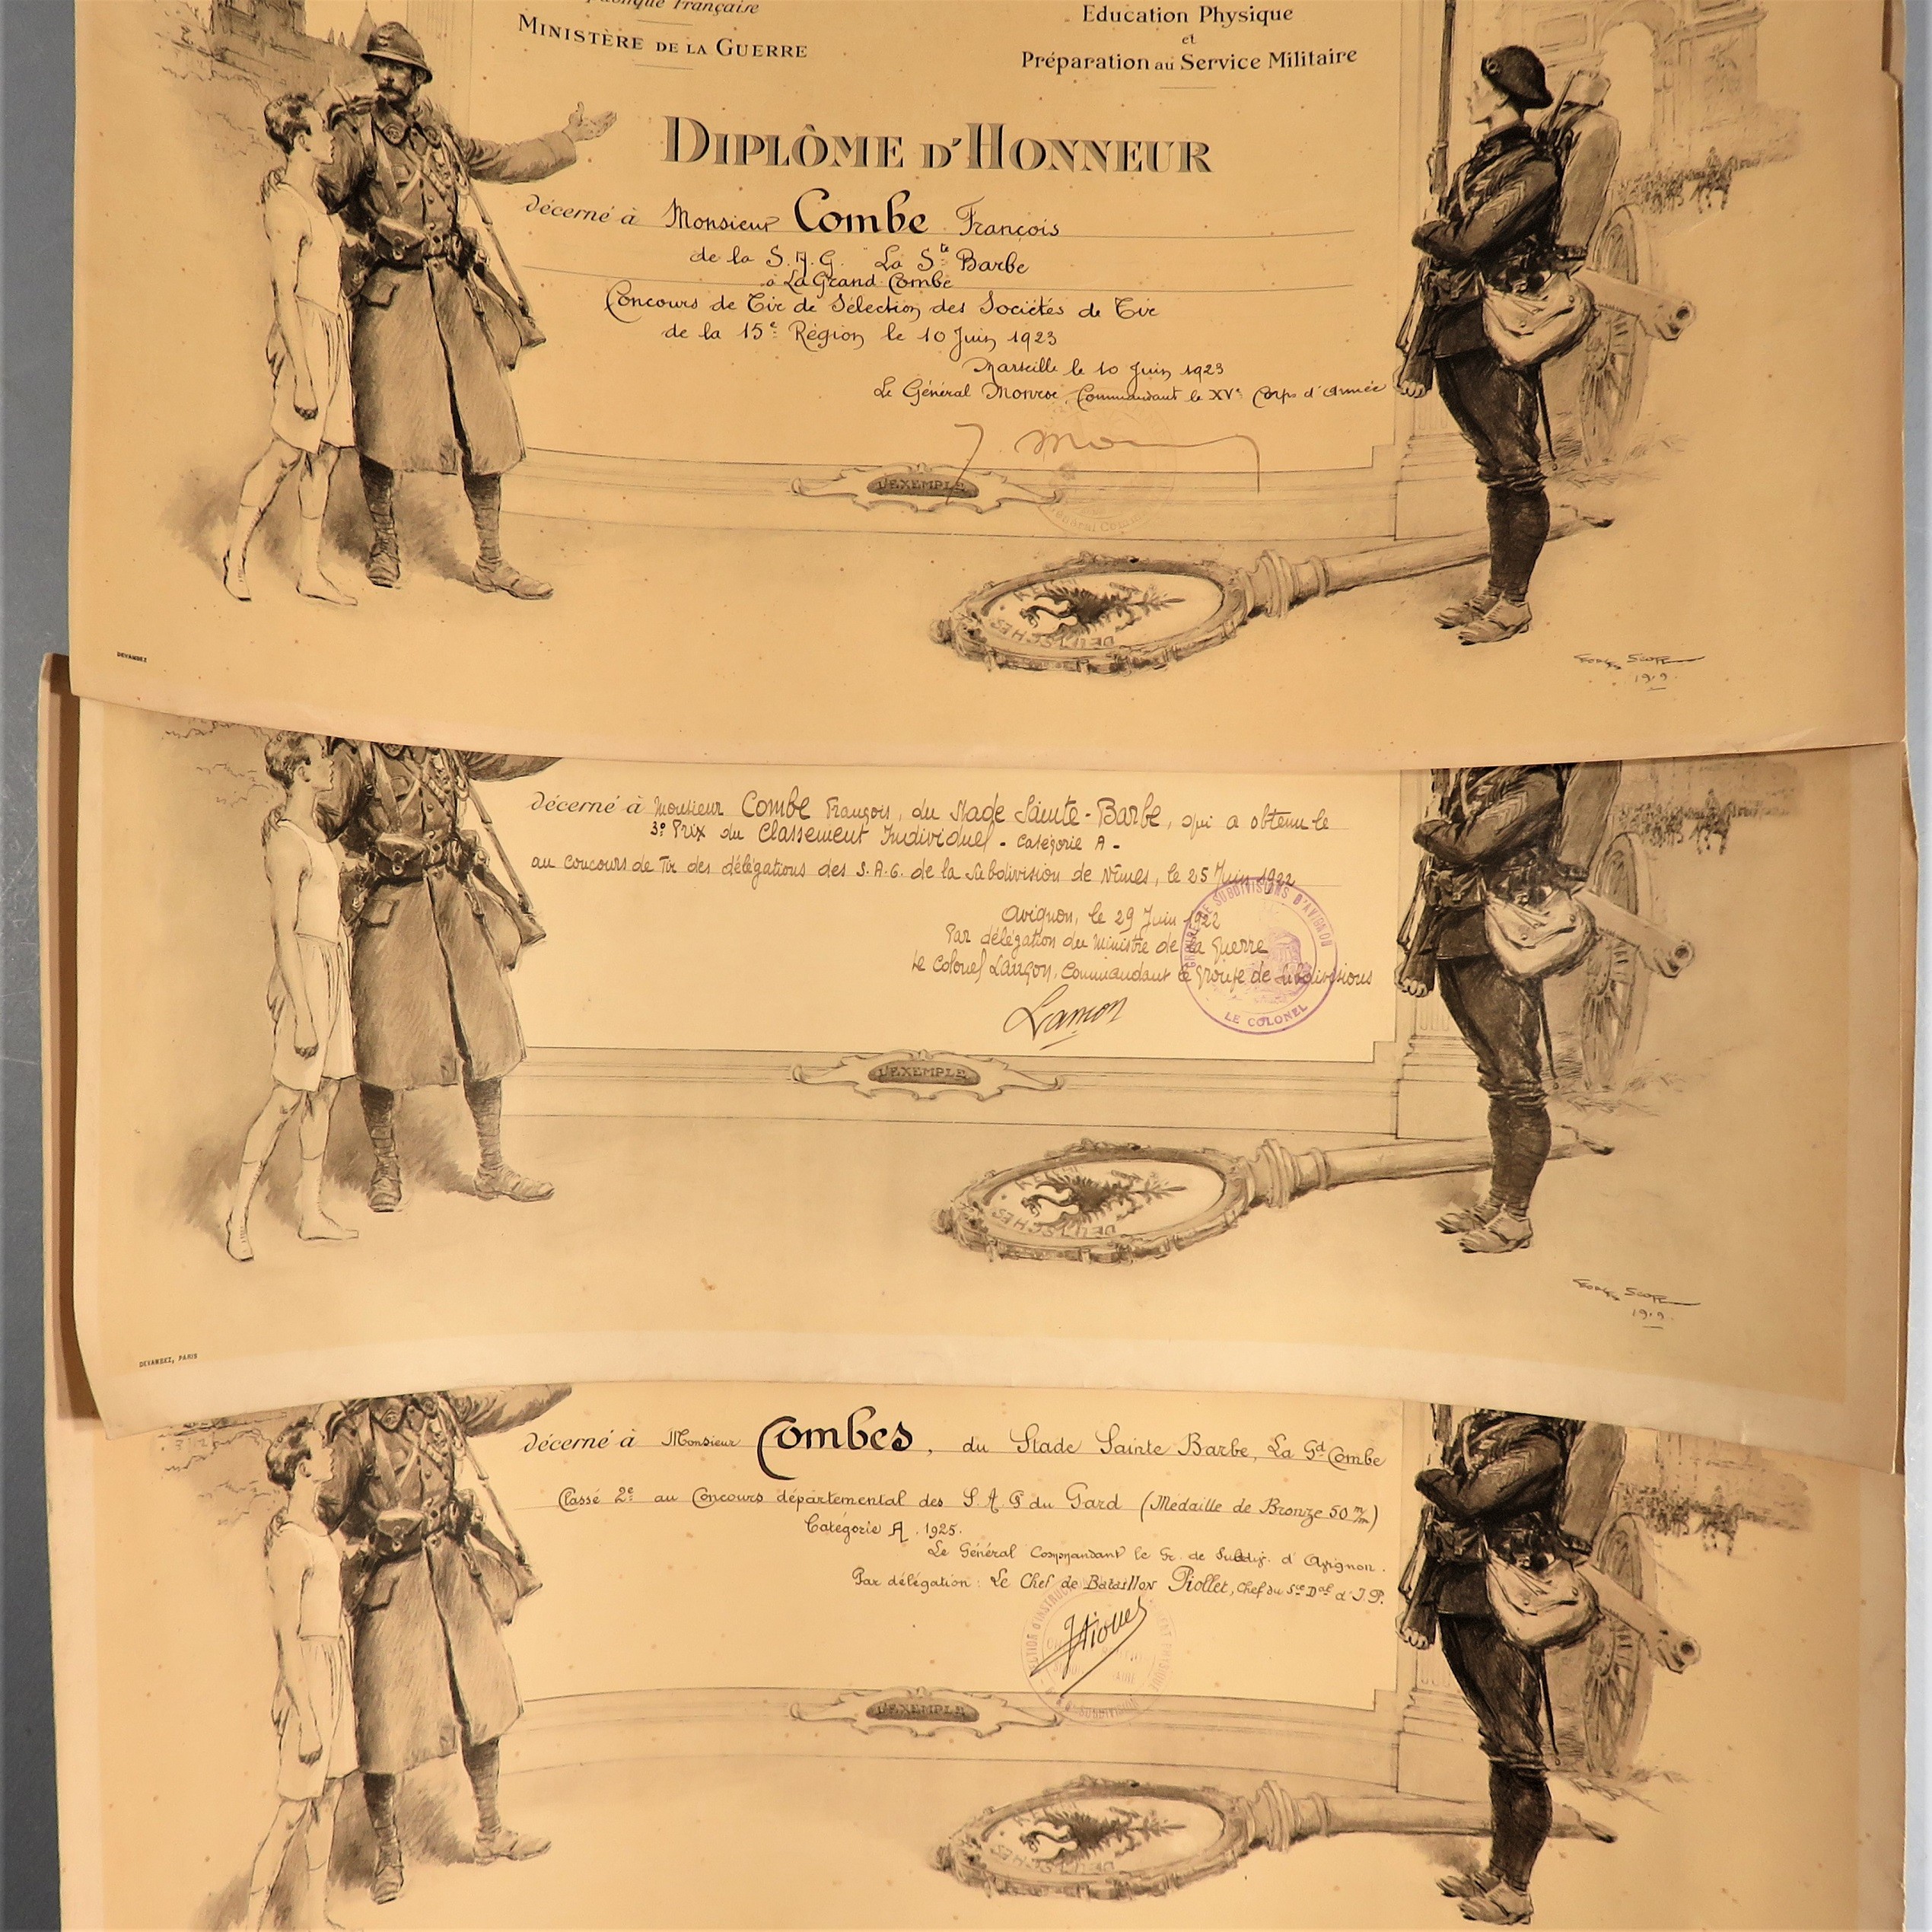 Française
MINISTÈRE DE LA GUERRE
Education Physique
et
Préparation au Service Militaire
DIPLÔME D'HONNEUR
décerné à Monsieur Combe François
de la S.A.G. "La Ste Barbe
à La Grand Combe
Concours de Tir de Sélection des Sociétés de Tir
de la 15e Région le 10 Juin 1923
Marseille le 10 Juin 1923
Le Général Monroe, Commandant le XVe Corps d'Armée
L'EXEMPLE
DEUTSCHES
DEVAMBEZ
GEORGES SCOTT
1919
décerné à Monsieur Combe François, du Stade Sainte-Barbe, qui a obtenu le
3e Prix du Classement Individuel - Catégorie A -
au concours de Tir des délégations des S.A.G. de la Subdivision de Nîmes, le 25 Juin 1922
Avignon, le 29 Juin 1922
Par délégation du Ministre de la Guerre
Le Colonel Lançon, Commandant le Groupe de Subdivisions
SUBDIVISIONS D'AVIGNON
LE COLONEL
Lançon
L'EXEMPLE
DEUTSCHES
GEORGES SCOTT
1919
DEVAMBEZ, PARIS
décerné à Monsieur Combes, du Stade Sainte Barbe, La Gd Combe
Classé 2e au Concours départemental des S A G du Gard (Medaille de Bronze 50 m/m)
Catégorie A. 1925.
Le Général Commandant le Gr. de Subdiv. d'Avignon.
Par délégation: Le Chef de Bataillon Piollet, Chef du Sce Dal d'I.P.
Piollet
L'EXEMPLE
DEUTSCHES